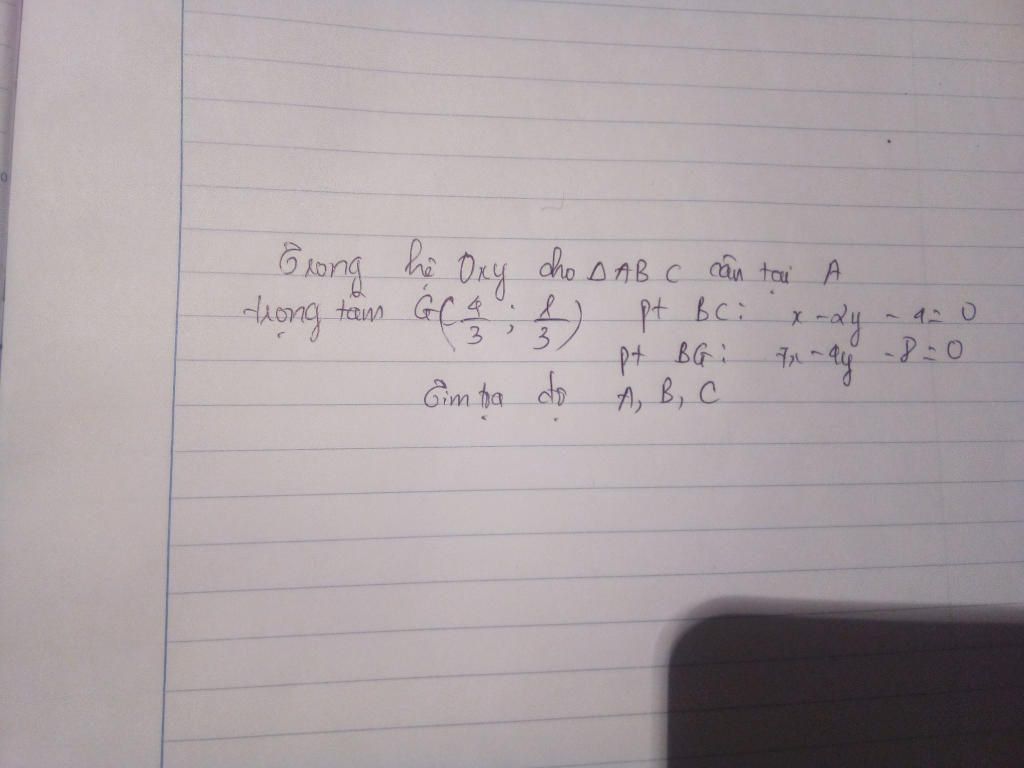 Trong hệ Oxy cho Δ ABC cân tại A
trọng tâm G(4/3; 1/3) pt BC: x - 2y - 4 = 0
pt BG: 7x - 4y - 8 = 0
Tìm tọa độ A, B, C